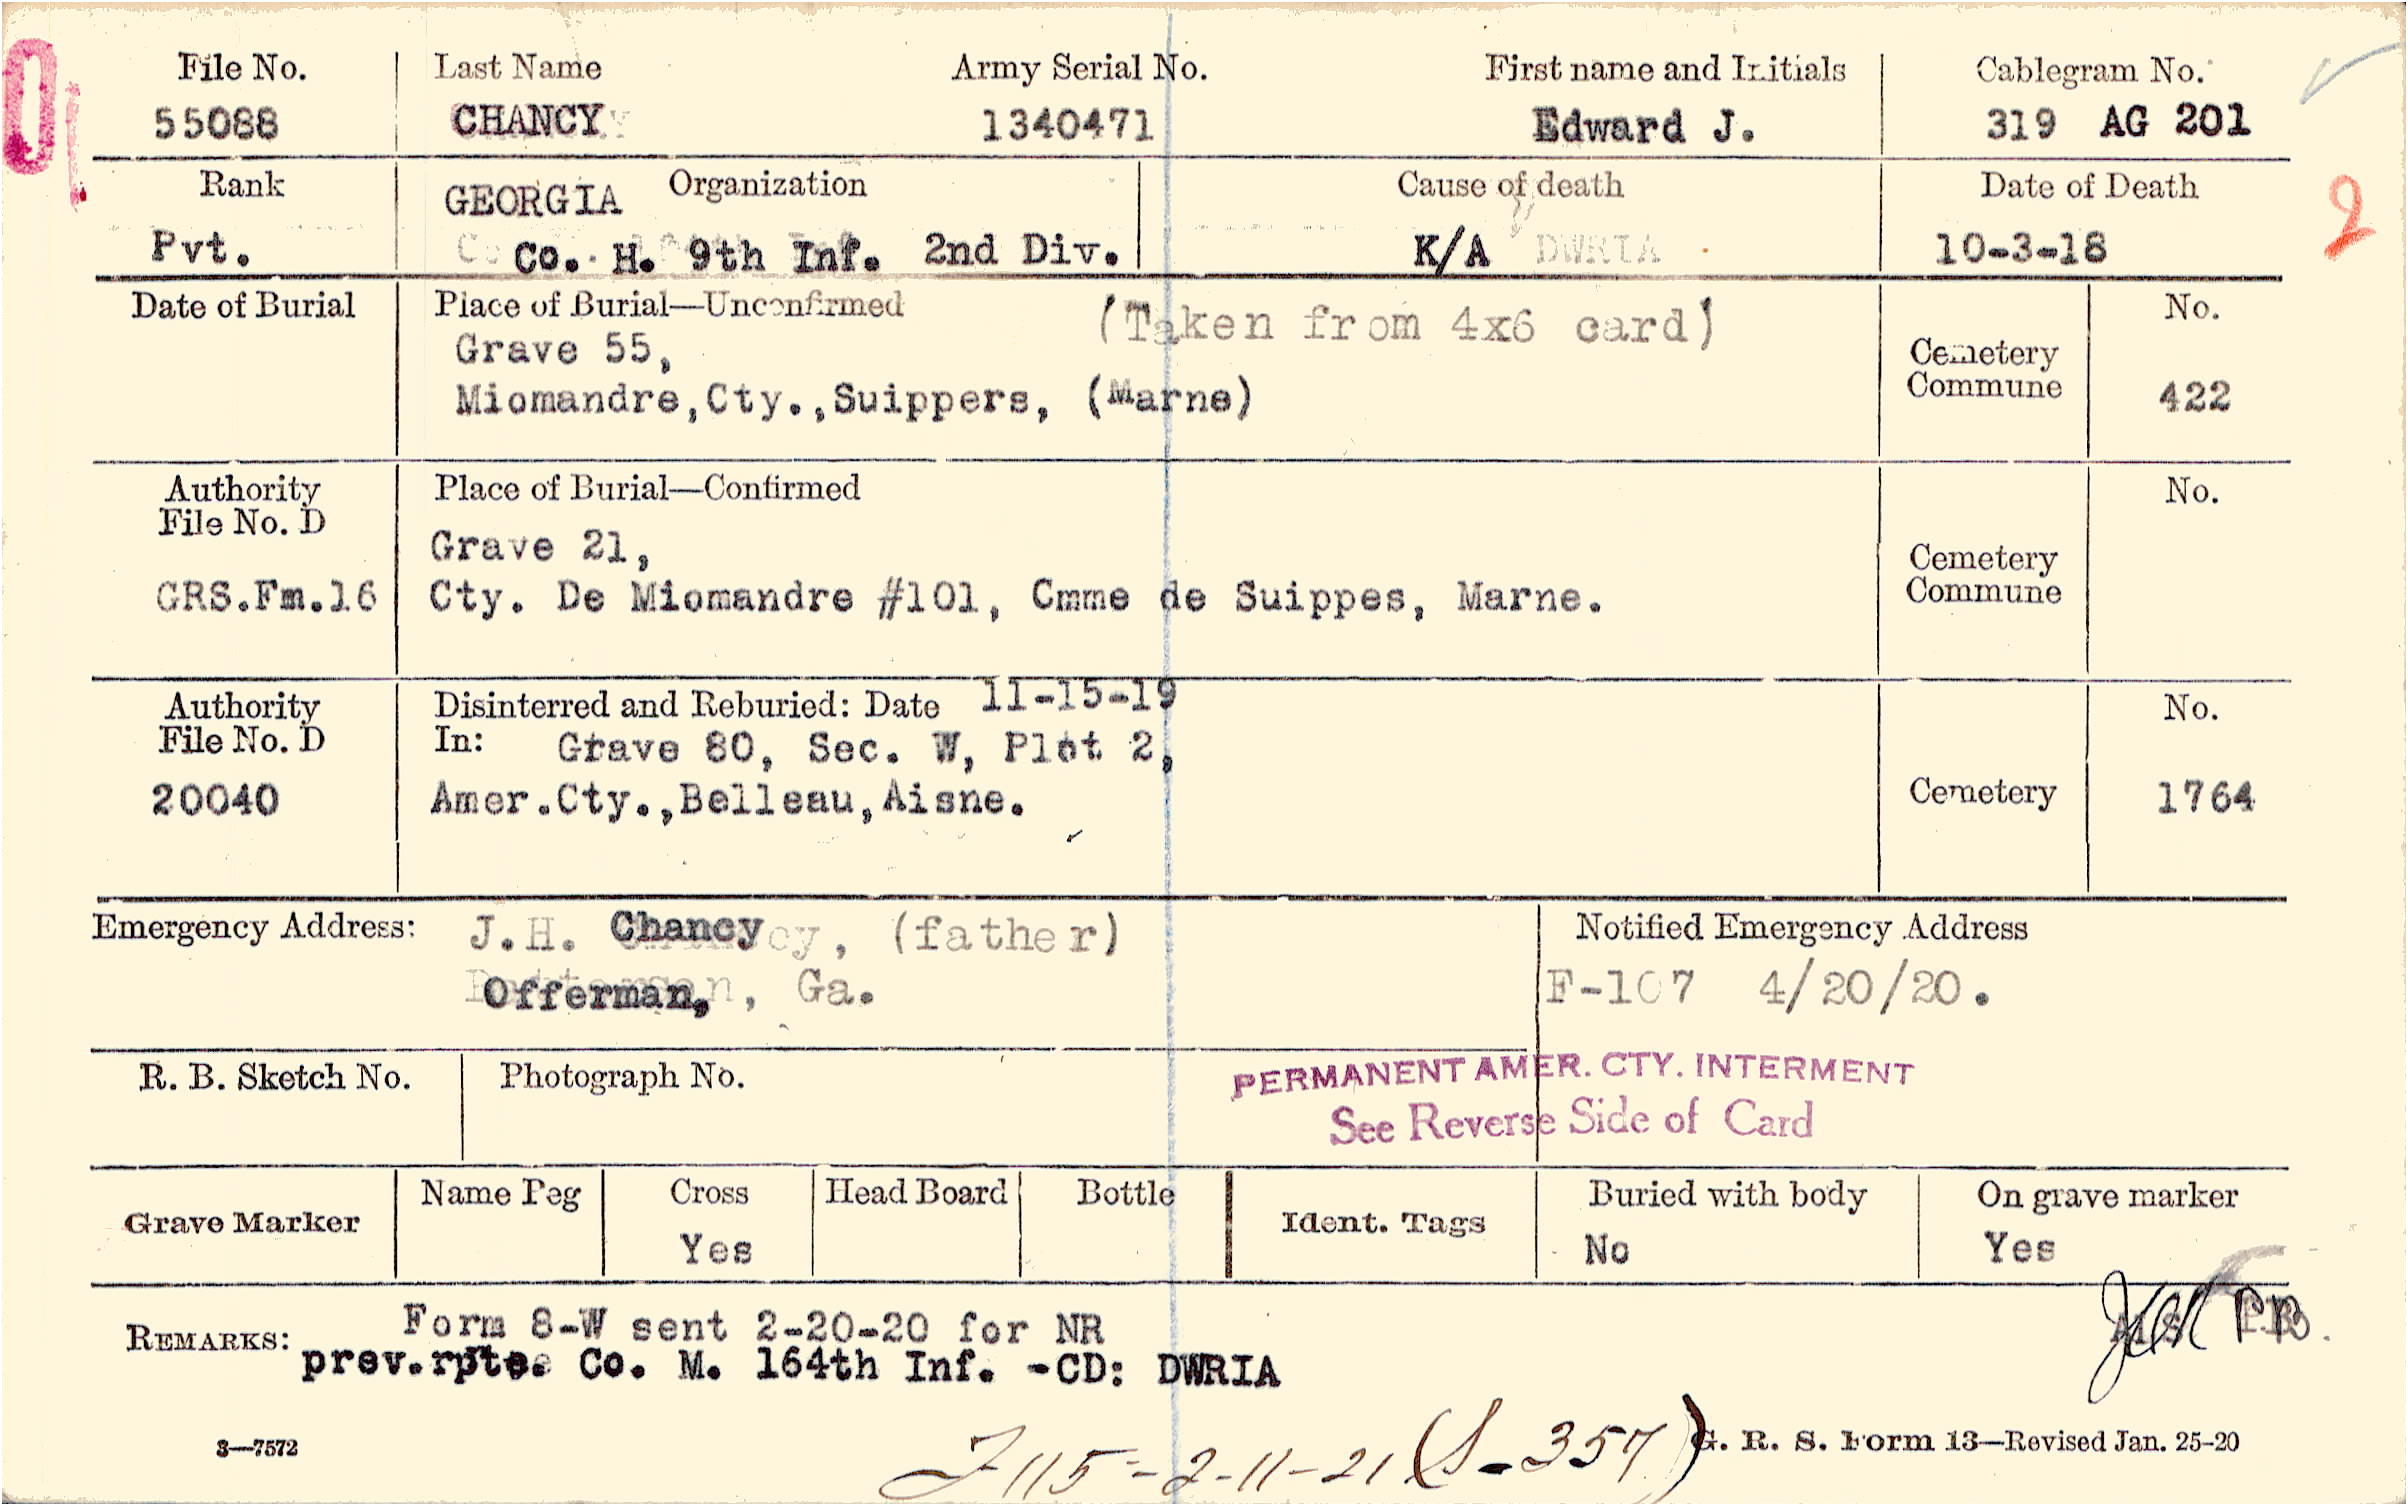 File No. Last Name Army Serial No. First name and Initials Cablegram No.
55088 CHANCY 1340471 Edward J. 319 AG 201
Rank GEORGIA Organization Cause of death Date of Death
2
Pvt. Co. H. 9th Inf. 2nd Div. K/A DWRIA 10-3-18
Date of Burial Place of Burial—Unconfirmed (Taken from 4x6 card) No.
Grave 55,
Cemetery
Miomandre,Cty.,Suippers, (Marne) Commune 422
Authority Place of Burial—Confirmed No.
File No. D
Grave 21,
Cemetery
GRS.Fm.16 Cty. De Miomandre #101, Cmme de Suippes, Marne. Commune
Authority Disinterred and Reburied: Date 11-15-19 No.
File No. D In: Grave 80, Sec. W, Plot 2,
20040 Amer.Cty.,Belleau,Aisne. Cemetery 1764
Emergency Address: J.H. Chancy, (father) Notified Emergency Address
Offerman, Ga. F-107 4/20/20.
R. B. Sketch No. Photograph No. PERMANENT AMER. CTY. INTERMENT
See Reverse Side of Card
Grave Marker Name Peg Cross Head Board Bottle Ident. Tags Buried with body On grave marker
Yes No Yes
REMARKS: Form 8-W sent 2-20-20 for NR
prev.rpte. Co. M. 164th Inf. -CD: DWRIA
3—7572 G. R. S. Form 13—Revised Jan. 25-20
F115-2-11-21 (S-357)